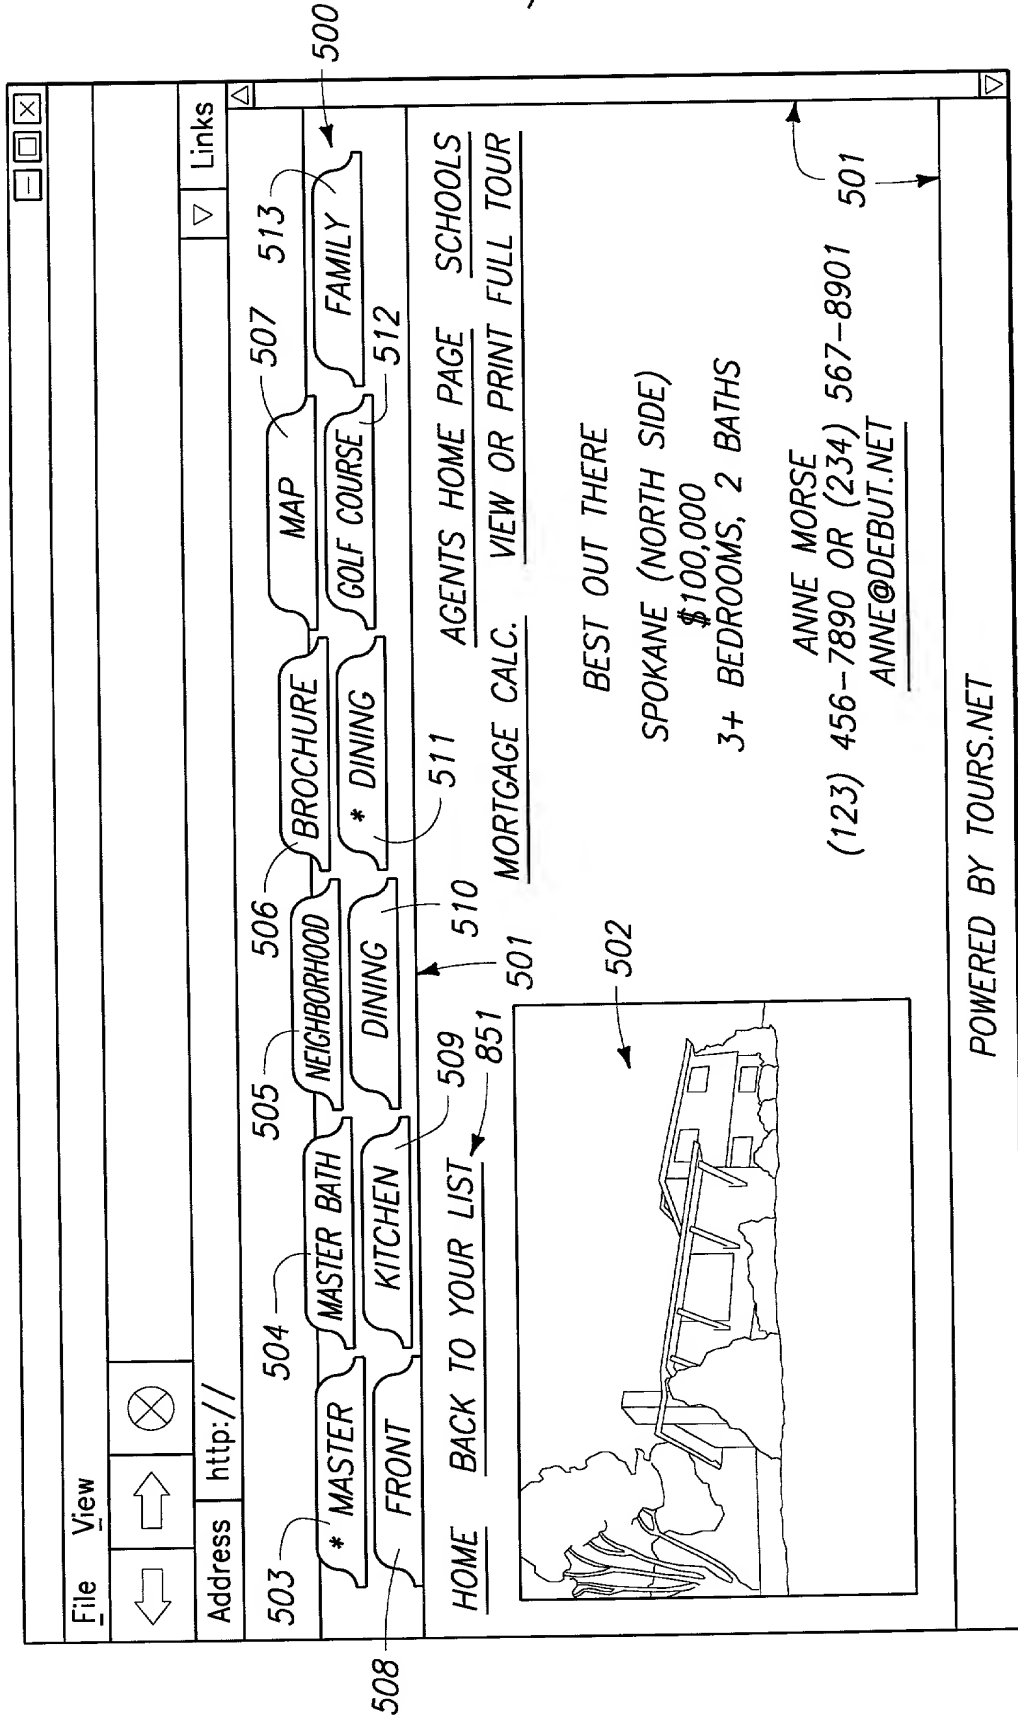 File View
Address http:// Links
500
503 504 505 506 507 513
* MASTER MASTER BATH NEIGHBORHOOD BROCHURE MAP
FRONT KITCHEN DINING * DINING GOLF COURSE FAMILY
508 509 510 511 512
501
HOME BACK TO YOUR LIST 851 AGENTS HOME PAGE SCHOOLS
MORTGAGE CALC. VIEW OR PRINT FULL TOUR
502
BEST OUT THERE
SPOKANE (NORTH SIDE)
$100,000
3+ BEDROOMS, 2 BATHS
ANNE MORSE
(123) 456-7890 OR (234) 567-8901
ANNE@DEBUT.NET
501
POWERED BY TOURS.NET